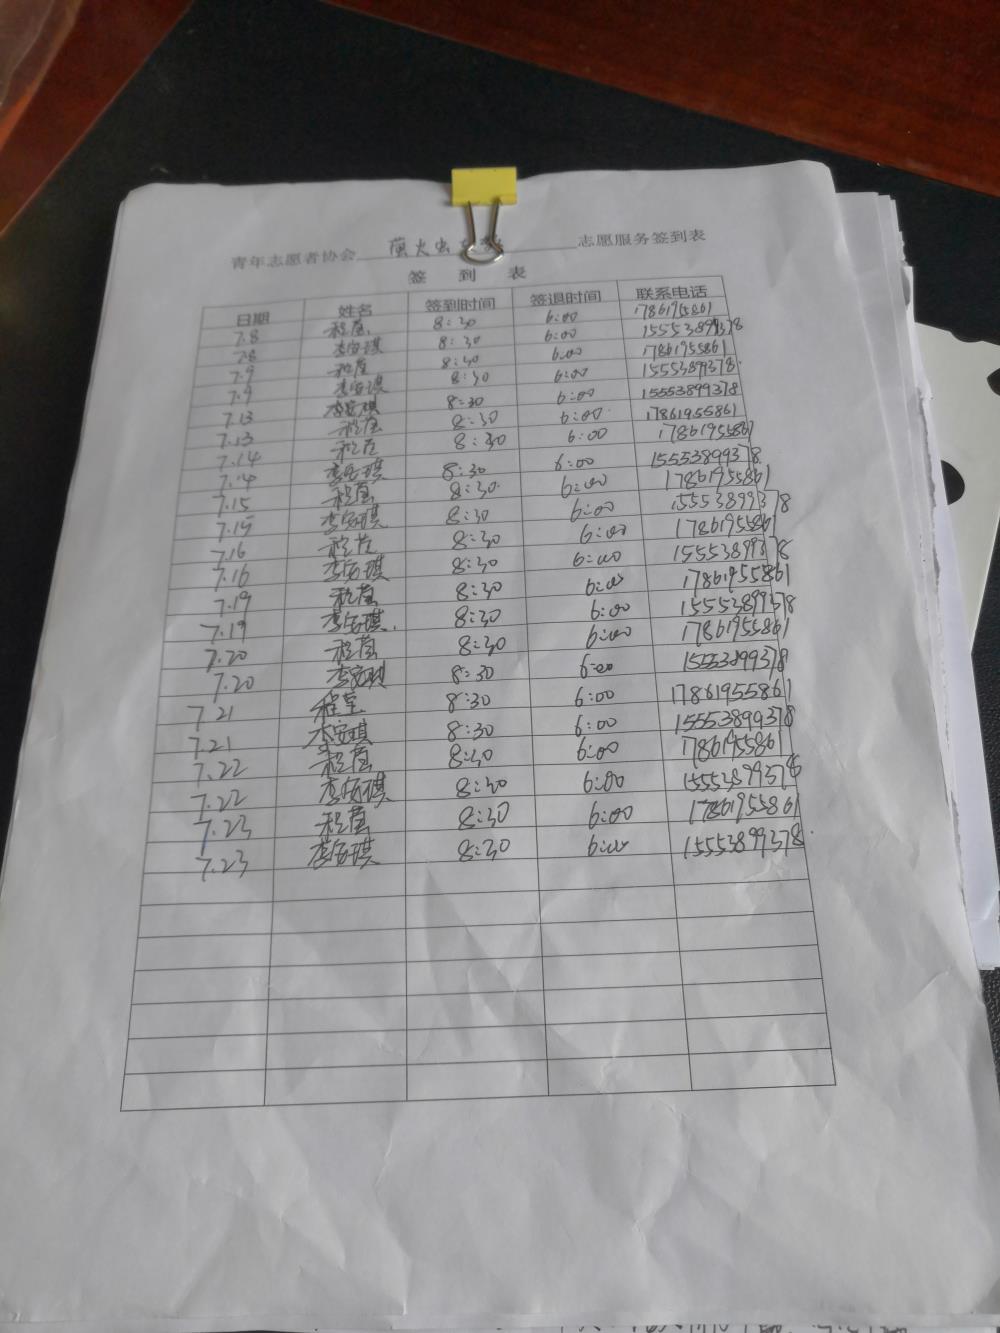 青年志愿者协会 萤火虫支教 志愿服务签到表
签 到 表
日期 姓名 签到时间 签退时间 联系电话
7.8 程萱 8:30 6:00 17861955861
7.8 李安琪 8:30 6:00 15553899378
7.9 程萱 8:30 6:00 17861955861
7.9 李安琪 8:30 6:00 15553899378
7.13 李安琪 8:30 6:00 15553899378
7.13 程萱 8:30 6:00 17861955861
7.14 程萱 8:30 6:00 17861955861
7.14 李安琪 8:30 6:00 15553899378
7.15 程萱 8:30 6:00 17861955861
7.15 李安琪 8:30 6:00 15553899378
7.16 程萱 8:30 6:00 17861955861
7.16 李安琪 8:30 6:00 15553899378
7.19 程萱 8:30 6:00 17861955861
7.19 李安琪 8:30 6:00 15553899378
7.20 程萱 8:30 6:00 17861955861
7.20 李安琪 8:30 6:00 15553899378
7.21 程萱 8:30 6:00 17861955861
7.21 李安琪 8:30 6:00 15553899378
7.22 程萱 8:30 6:00 17861955861
7.22 李安琪 8:30 6:00 15553899378
7.23 程萱 8:30 6:00 17861955861
7.23 李安琪 8:30 6:00 15553899378